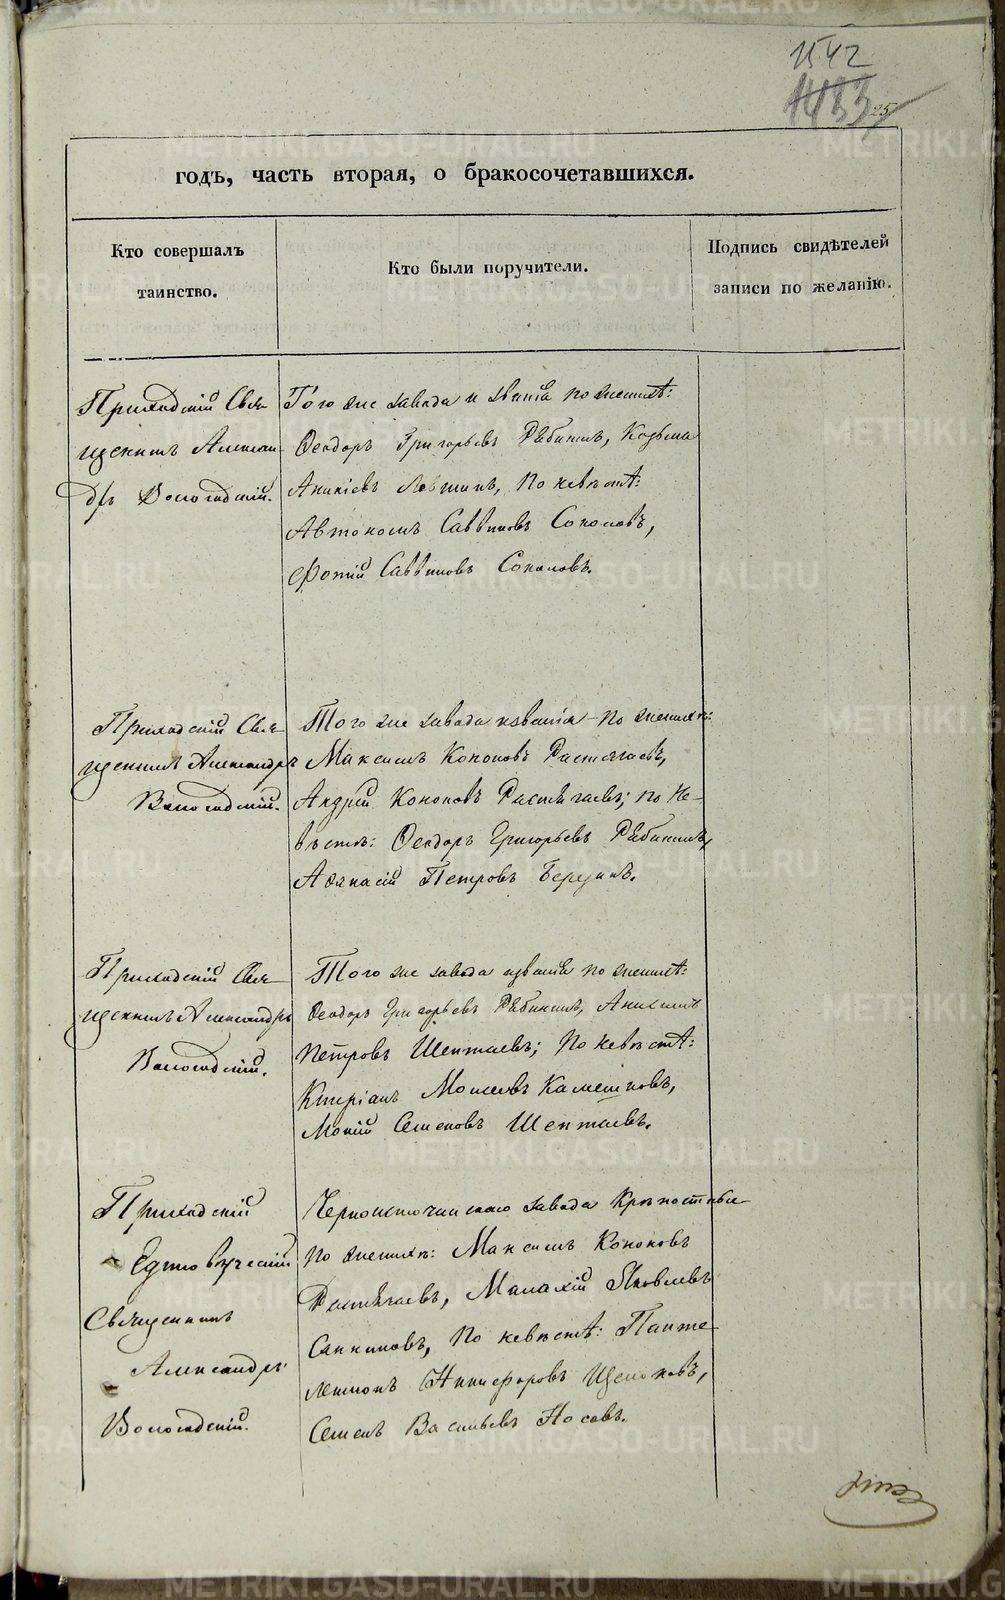 1542
1433
25
годъ, часть вторая, о бракосочетавшихся.
Кто совершалъ
таинство.
Кто были поручители.
Подпись свидѣтелей
записи по желанію.
Приходскій Свя-
щенникъ Алексан-
дръ Вологодскій.
Того же завода и званія по женихѣ:
Ѳеодоръ Григорьевъ Рябининъ, Козьма
Аникіевъ Левшинъ, по невѣстѣ:
Автономъ Саввиновъ Соколовъ,
Фотій Саввиновъ Соколовъ.
Приходскій Свя-
щенникъ Александръ
Вологодскій.
Того же завода и званія - по женихѣ:
Максимъ Кононовъ Растягаевъ,
Андрей Кононовъ Растягаевъ; по не-
вѣстѣ: Ѳеодоръ Григорьевъ Рябининъ,
Аѳанасій Петровъ Березинъ.
Приходскій Свя-
щенникъ Александръ
Вологодскій.
Того же завода и званія по женихѣ:
Ѳеодоръ Григорьевъ Рябининъ,
Петровъ Шептаевъ; по невѣстѣ:
Моисеевъ
Мокій Семеновъ Шептаевъ.
Приходскій
Единовѣрческій
Священникъ
Александръ
Вологодскій.
Черноисточинскаго завода Крѣпостные
по женихѣ: Максимъ Кононовъ
Растягаевъ, Малахій Яковлевъ
Санниковъ, по невѣстѣ: Панте-
леимонъ Никифоровъ
Семенъ Васильевъ Носовъ.
METRIKI.GASO-URAL.RU